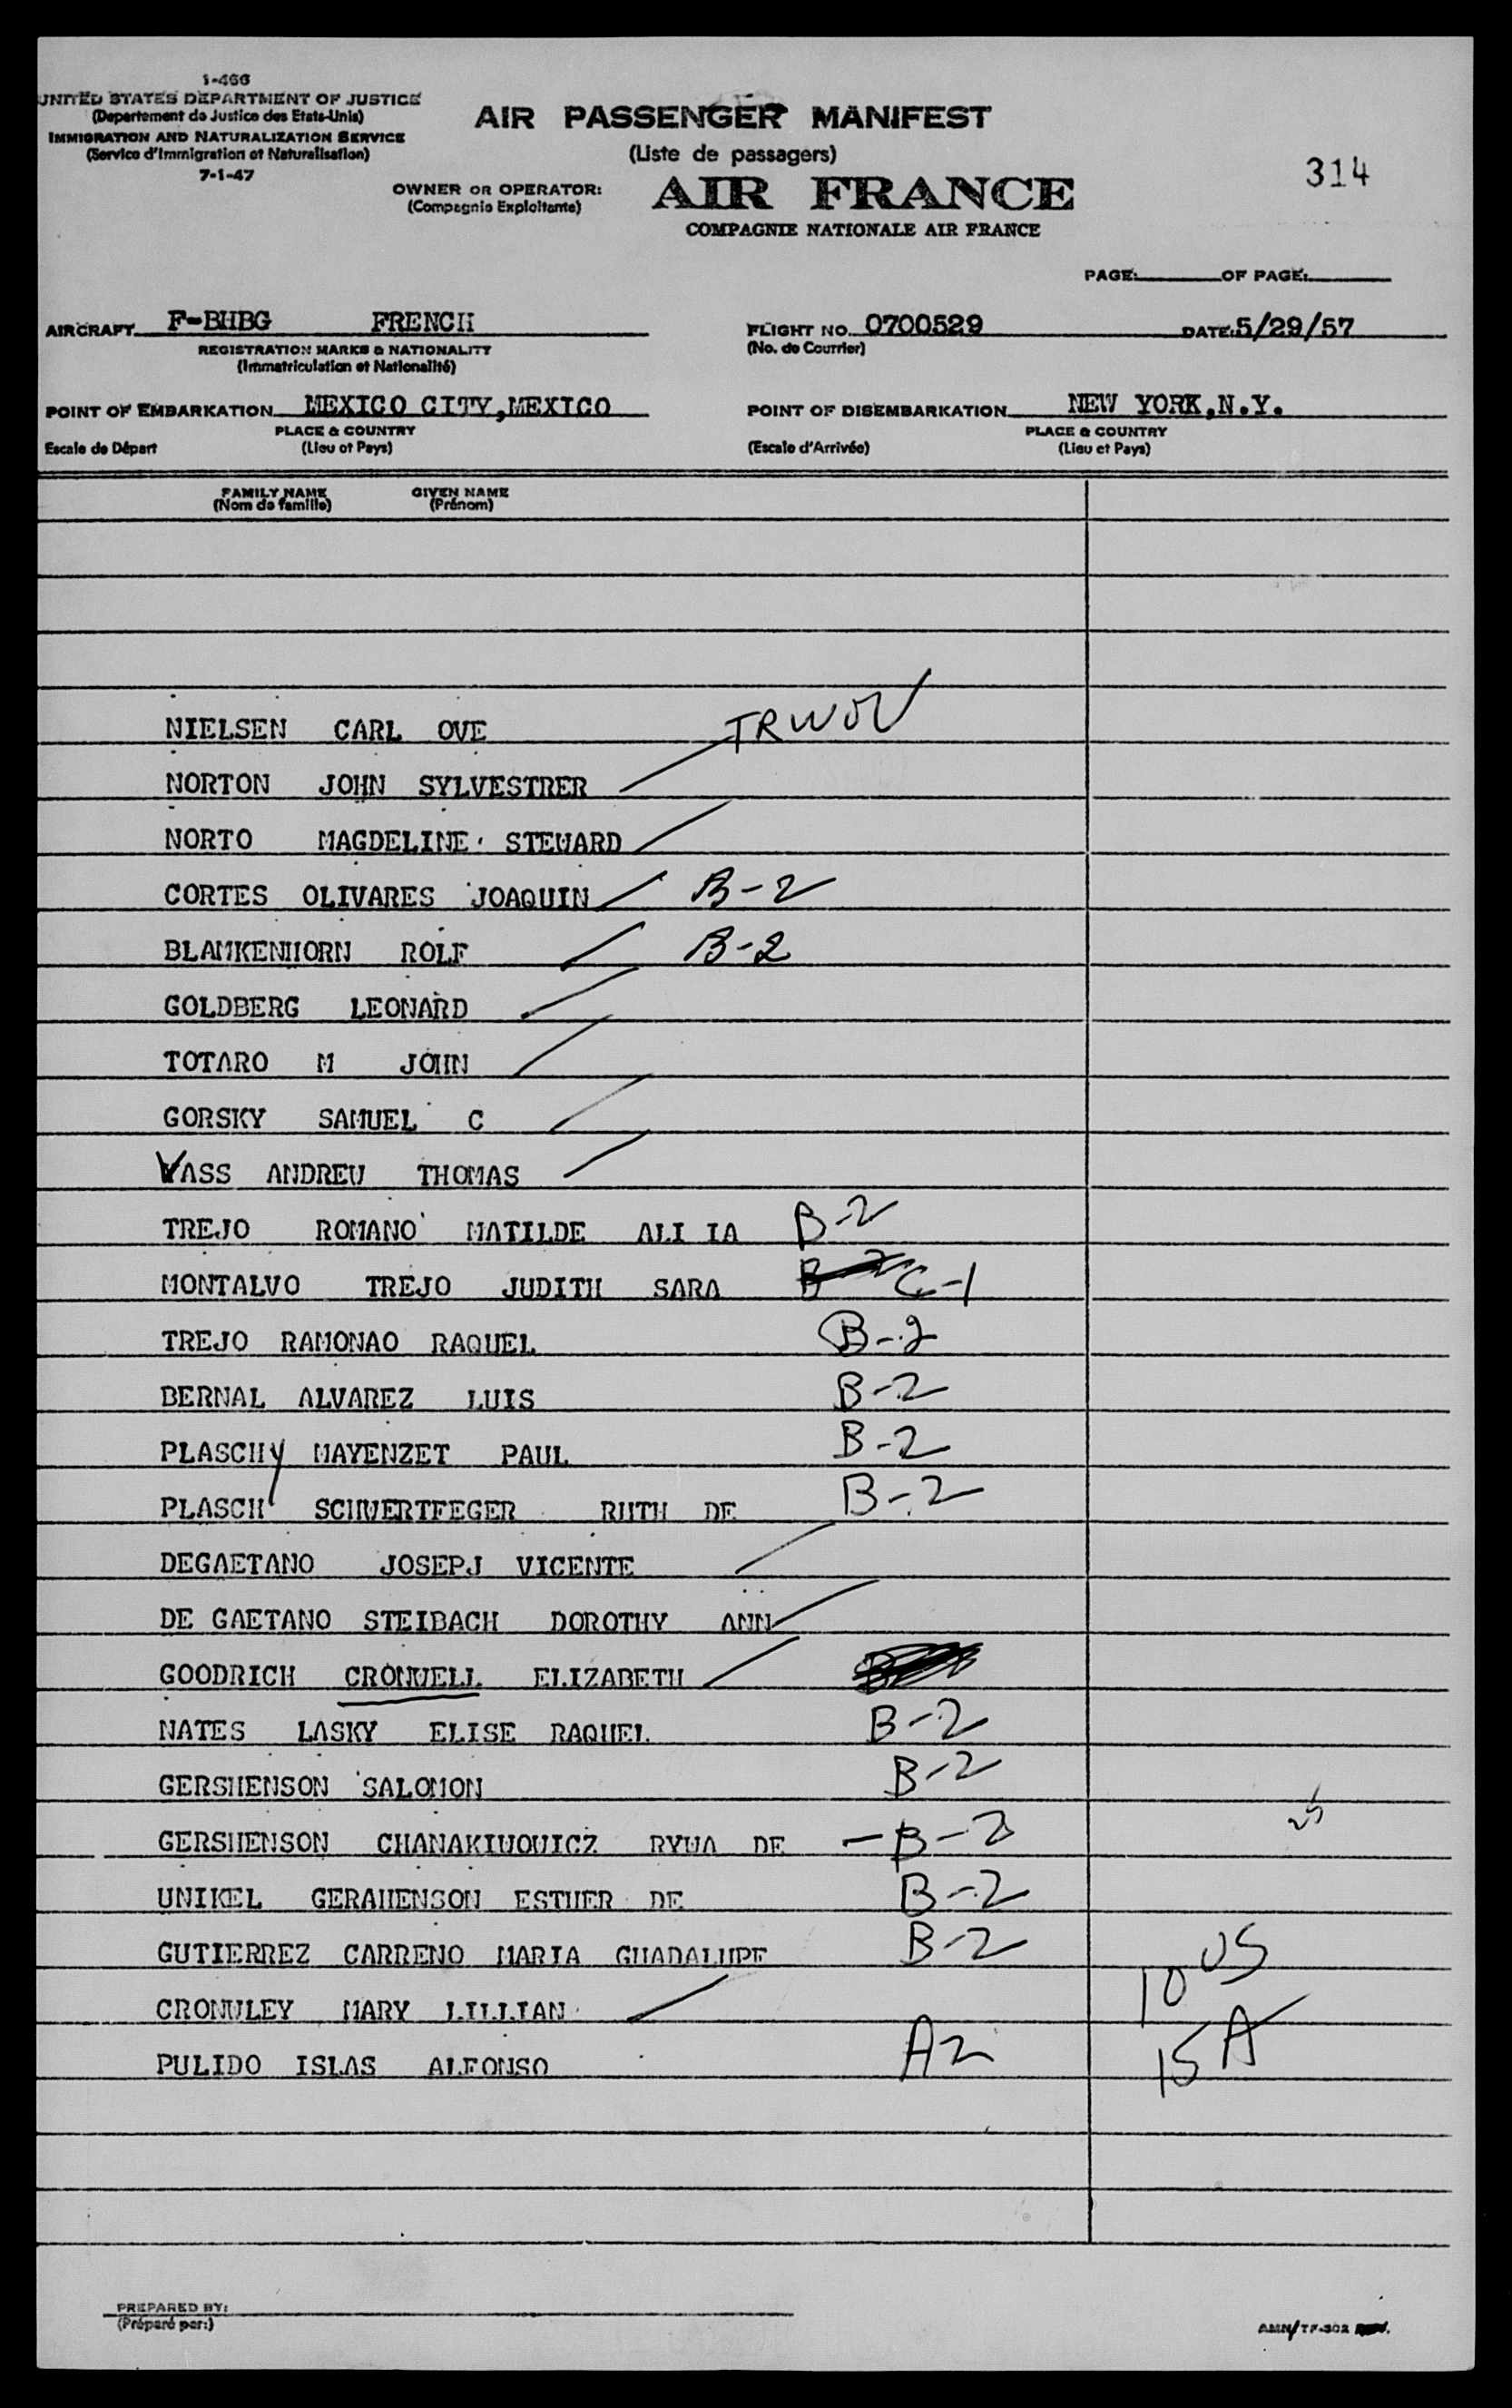 1-466
UNITED STATES DEPARTMENT OF JUSTICE
(Departement de Justice des Etats-Unis)
IMMIGRATION AND NATURALIZATION SERVICE
(Service d'Immigration et Naturalisation)
7-1-47
AIR PASSENGER MANIFEST
(Liste de passagers)
OWNER OR OPERATOR:
(Compagnie Exploitante)
AIR FRANCE
COMPAGNIE NATIONALE AIR FRANCE
314
PAGE: OF PAGE:
AIRCRAFT F-BHBG FRENCH FLIGHT NO. 0700529 DATE: 5/29/57
REGISTRATION MARKS & NATIONALITY (No. de Courrier)
(Immatriculation et Nationalité)
POINT OF EMBARKATION MEXICO CITY, MEXICO POINT OF DISEMBARKATION NEW YORK, N.Y.
PLACE & COUNTRY PLACE & COUNTRY
Escale de Départ (Lieu et Pays) (Escale d'Arrivée) (Lieu et Pays)
FAMILY NAME GIVEN NAME
(Nom de famille) (Prénom)
NIELSEN CARL OVE TRWOV
NORTON JOHN SYLVESTRER
NORTO MAGDELINE STEWARD
CORTES OLIVARES JOAQUIN B-2
BLAMKENHORN ROLF B-2
GOLDBERG LEONARD
TOTARO M JOHN
GORSKY SAMUEL C
VASS ANDREW THOMAS
TREJO ROMANO MATILDE ALI IA B-2
MONTALVO TREJO JUDITH SARA B-2 C-1
TREJO RAMONAO RAQUEL B-2
BERNAL ALVAREZ LUIS B-2
PLASCHY MAYENZET PAUL B-2
PLASCH SCHWERTFEGER RUTH DE B-2
DEGAETANO JOSEPJ VICENTE
DE GAETANO STEIBACH DOROTHY ANN
GOODRICH CROMWELL ELIZABETH
NATES LASKY ELISE RAQUEL B-2
GERSHENSON SALOMON B-2
GERSHENSON CHANAKIWOWICZ RYWA DE - B-2
UNIKEL GERAHENSON ESTHER DE B-2
GUTIERREZ CARRENO MARIA GUADALUPE B-2
10 US
CRONWLEY MARY LILLIAN
PULIDO ISLAS ALFONSO A2 15 A
PREPARED BY:
(Préparé par:)